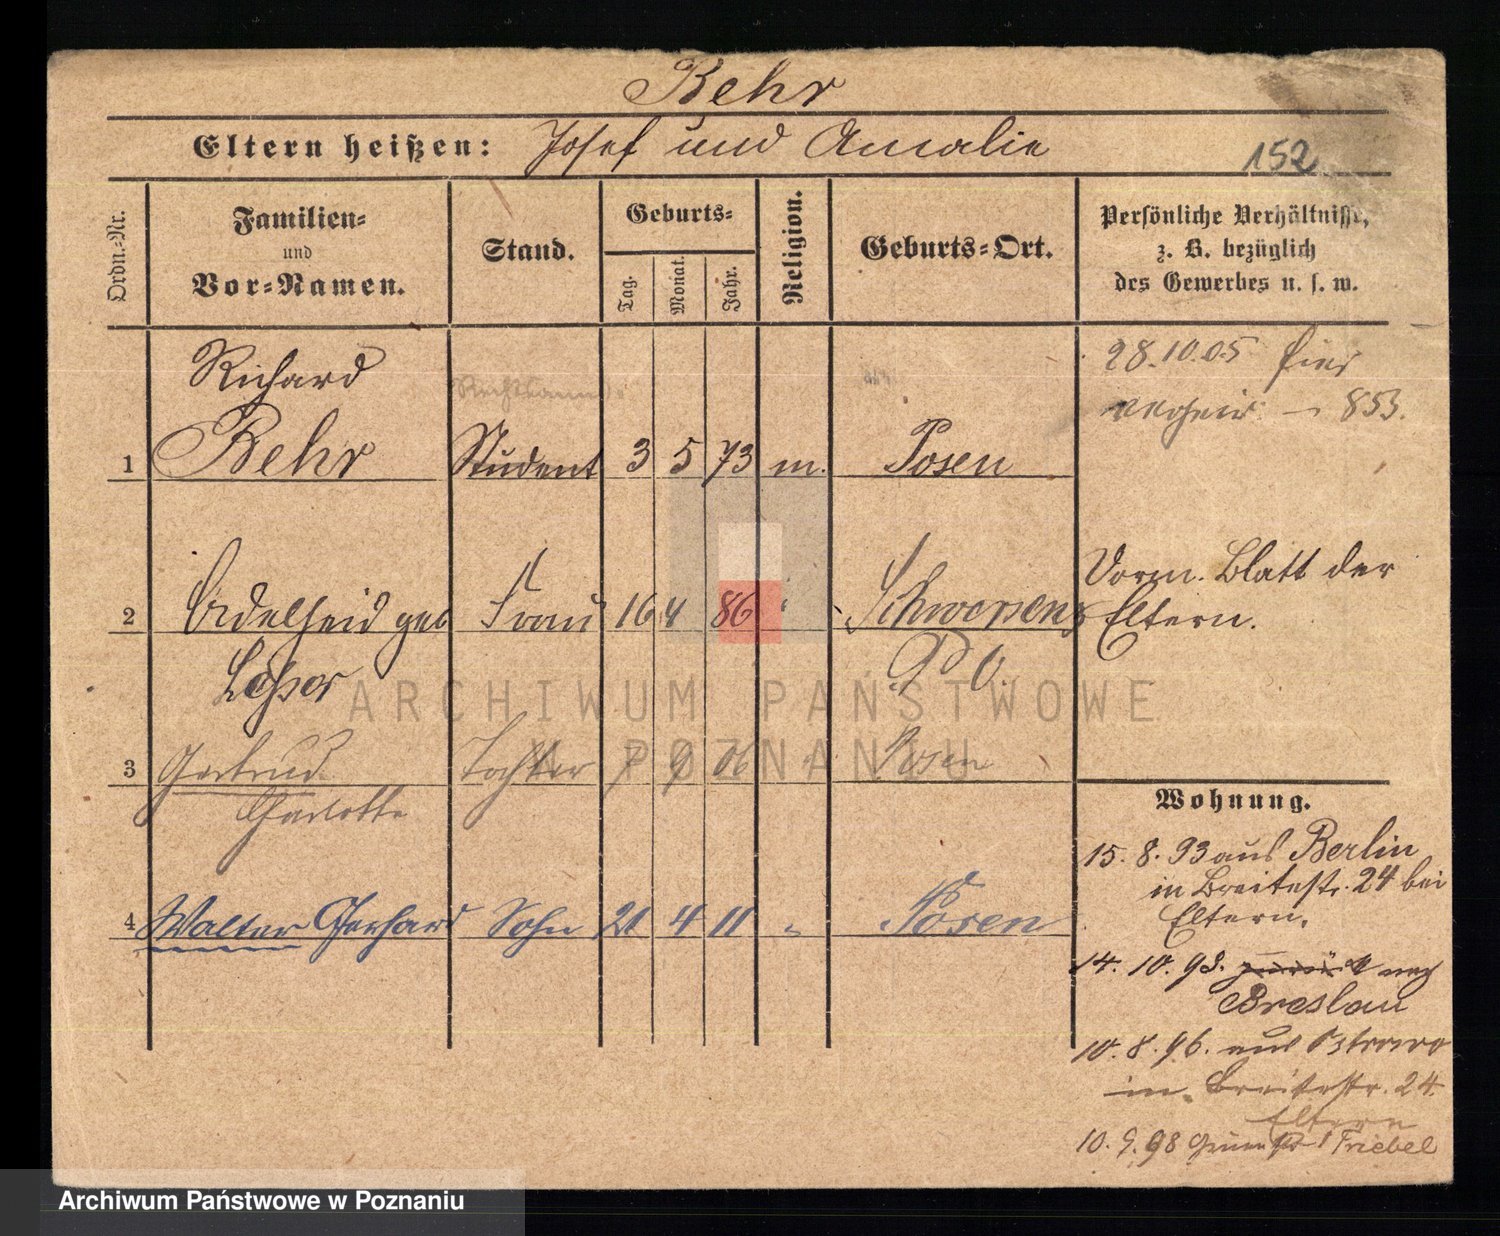 Behr
Eltern heißen: Josef und Amalie
152
Ordn.-Nr.
Familien-
und
Vor-Namen.
Stand.
Geburts-
Tag.
Monat.
Jahr.
Religion.
Geburts-Ort.
Persönliche Verhältnisse,
z. B. bezüglich
des Gewerbes u. s. w.
Richard
1 Behr Student 3 5 73 m. Posen
28.10.05 hier
853.
2 Adelheid geb Frau 16 4 86 " Schwersenz
P O.
Vorm. Blatt der
Eltern.
3 Gertrud Tochter 7 9 06 Posen
Charlotte
4 Walter Gerhard Sohn 21 4 11 " Posen
Wohnung.
15. 8. 93 aus Berlin
in Breitestr. 24 bei
Eltern.
14. 10. 93. zurück nach
Breslau
10. 8. 96. aus Ostrowo
in Breitestr. 24.
Eltern
10. 9. 98 Triebel
ARCHIWUM PAŃSTWOWE
W POZNANIU
Archiwum Państwowe w Poznaniu